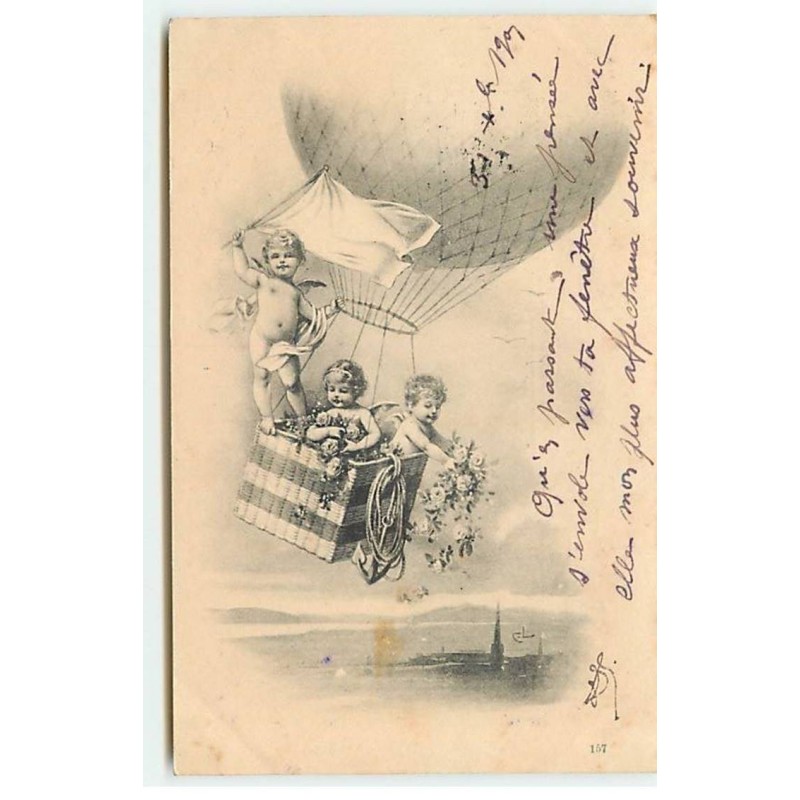 Qu'en passant une pensée
s'envole vers ta fenêtre et avec
elle mon plus affectueux souvenir.
157